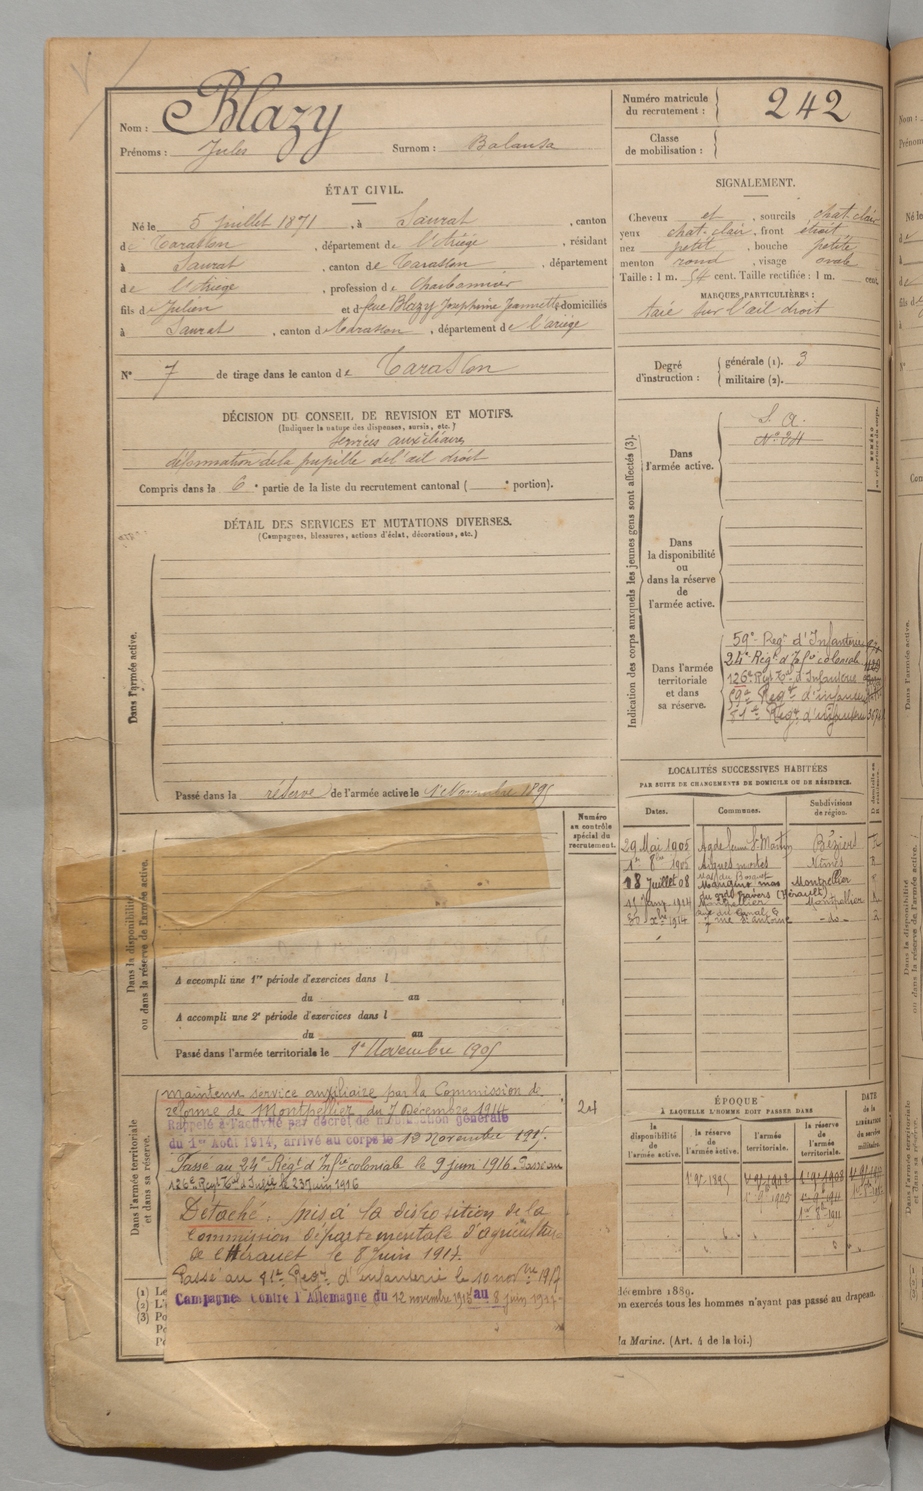 Nom : Blazy
Prénoms : Jules Surnom : Balansa
Numéro matricule du recrutement : 242
Classe de mobilisation :
ÉTAT CIVIL.
Né le 5 juillet 1871, à Saurat, canton
de Tarascon, département de l'Ariège, résidant
à Saurat, canton de Tarascon, département
de l'Ariège, profession de Charbonnier
fils de Julien et de feue Blazy Josephine Jeannette, domiciliés
à Saurat, canton de Tarascon, département de l'ariège
N° 7 de tirage dans le canton de Tarascon
SIGNALEMENT.
Cheveux et, sourcils chat. clair
yeux chat. clair, front étroit
nez petit, bouche petite
menton rond, visage ovale
Taille : 1 m. 54 cent. Taille rectifiée : 1 m. cent.
MARQUES PARTICULIÈRES :
taie sur l'œil droit
Degré d'instruction : générale (1). 3
militaire (2).
DÉCISION DU CONSEIL DE REVISION ET MOTIFS.
(Indiquer la nature des dispenses, sursis, etc.)
services auxiliaires
déformation de la pupille de l'œil droit
Compris dans la 6e partie de la liste du recrutement cantonal ( e portion).
DÉTAIL DES SERVICES ET MUTATIONS DIVERSES.
(Campagnes, blessures, actions d'éclat, décorations, etc.)
Dans l'armée active.
Passé dans la réserve de l'armée active le 1er Novembre 1895
Numéro au contrôle spécial du recrutement.
Dans la disponibilité
ou dans la réserve de l'armée active.
A accompli une 1re période d'exercices dans l
du au
A accompli une 2e période d'exercices dans l
du au
Passé dans l'armée territoriale le 1er Novembre 1905
Dans l'armée territoriale
et dans sa réserve.
maintenu service auxiliaire par la Commission de
réforme de Montpellier du 7 Décembre 1914
Rappelé à l'activité par décret de mobilisation générale
du 1er Août 1914, arrivé au corps le 13 Novembre 1915.
Passé au 24e Régt d'Infrie coloniale le 9 juin 1916. Passé au
126e Régt Tal d'Infrie le 23 juin 1916
24
Détaché, mis à la disposition de la
Commission départementale d'agriculture
de l'Hérault le 8 Juin 1917.
Passé au 81e Régt d'infanterie le 10 novbre 1917
Campagne contre l'Allemagne du 12 novembre 1915 au 8 juin 1917
Indication des corps auxquels les jeunes gens sont affectés (3).
Dans l'armée active.
S. A.
N° 24
Dans la disponibilité ou dans la réserve de l'armée active.
Dans l'armée territoriale et dans sa réserve.
59e Regt d'Infanterie
24e Régt d'Infie coloniale
126e Régt Tal d'Infanterie
Regt d'infanterie
81e Regt d'infanterie
LOCALITÉS SUCCESSIVES HABITÉES
PAR SUITE DE CHANGEMENTS DE DOMICILE OU DE RÉSIDENCE.
Dates. Communes. Subdivisions de région.
29 Mai 1905 Agde Béziers
1er 8bre 1905 Aigues mortes Nîmes
18 Juillet 08 Mauguio mas Montpellier
(Hérault)
Montpellier Montpellier
1914 -do-
ÉPOQUE
À LAQUELLE L'HOMME DOIT PASSER DANS
la disponibilité de l'armée active.
la réserve de l'armée active.
l'armée territoriale.
la réserve de l'armée territoriale.
DATE de la LIBÉRATION du service militaire.
1er 9bre 1895
1er 9bre 1905
décembre 1889.
on exercés tous les hommes n'ayant pas passé au drapeau.
la Marine. (Art. 4 de la loi.)